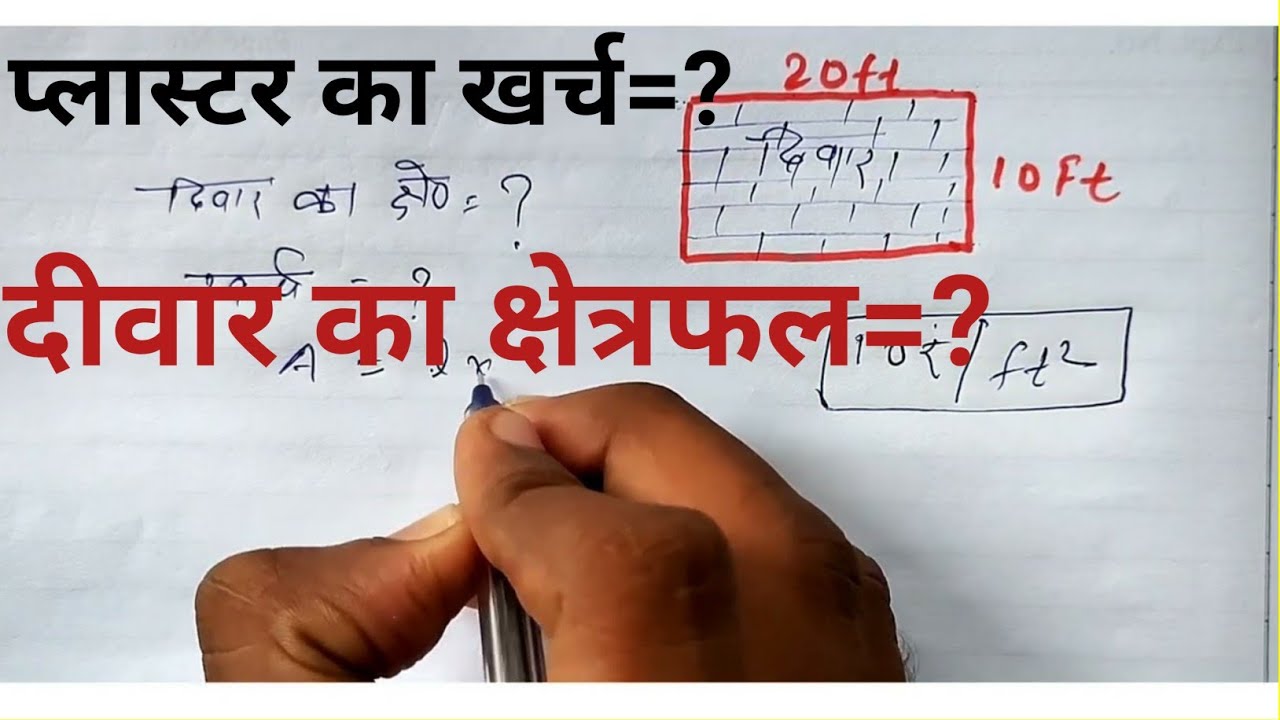 प्लास्टर का खर्च=?
20ft
दिवार
10Ft
दिवार का क्षे०=?
= ?
दीवार का क्षेत्रफल=?
10₹/ft²
A = l x